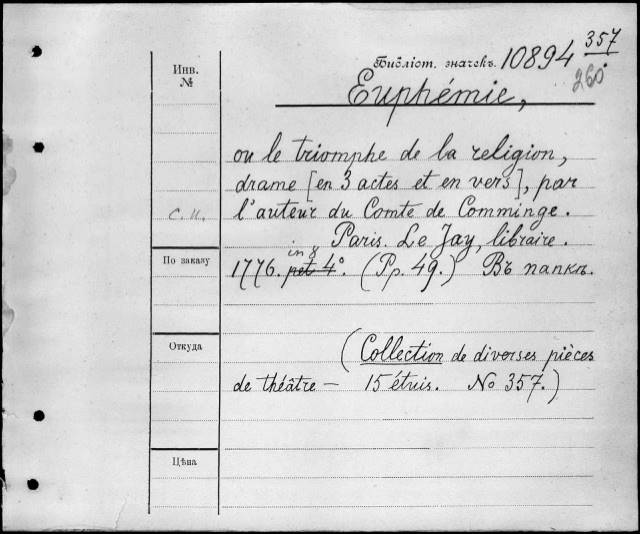 Инв.
№
Библіот. значекъ. 10894 357
260
Euphémie,
ou le triomphe de la religion,
drame [en 3 actes et en vers], par
с. и. l'auteur du Comte de Comminge.
Paris. Le Jay, libraire.
in 8
По заказу
1776. pet 4°. (Pp. 49.) Въ папкѣ.
Откуда
(Collection de diverses pièces
de théâtre — 15 étuis. No 357.)
Цѣна